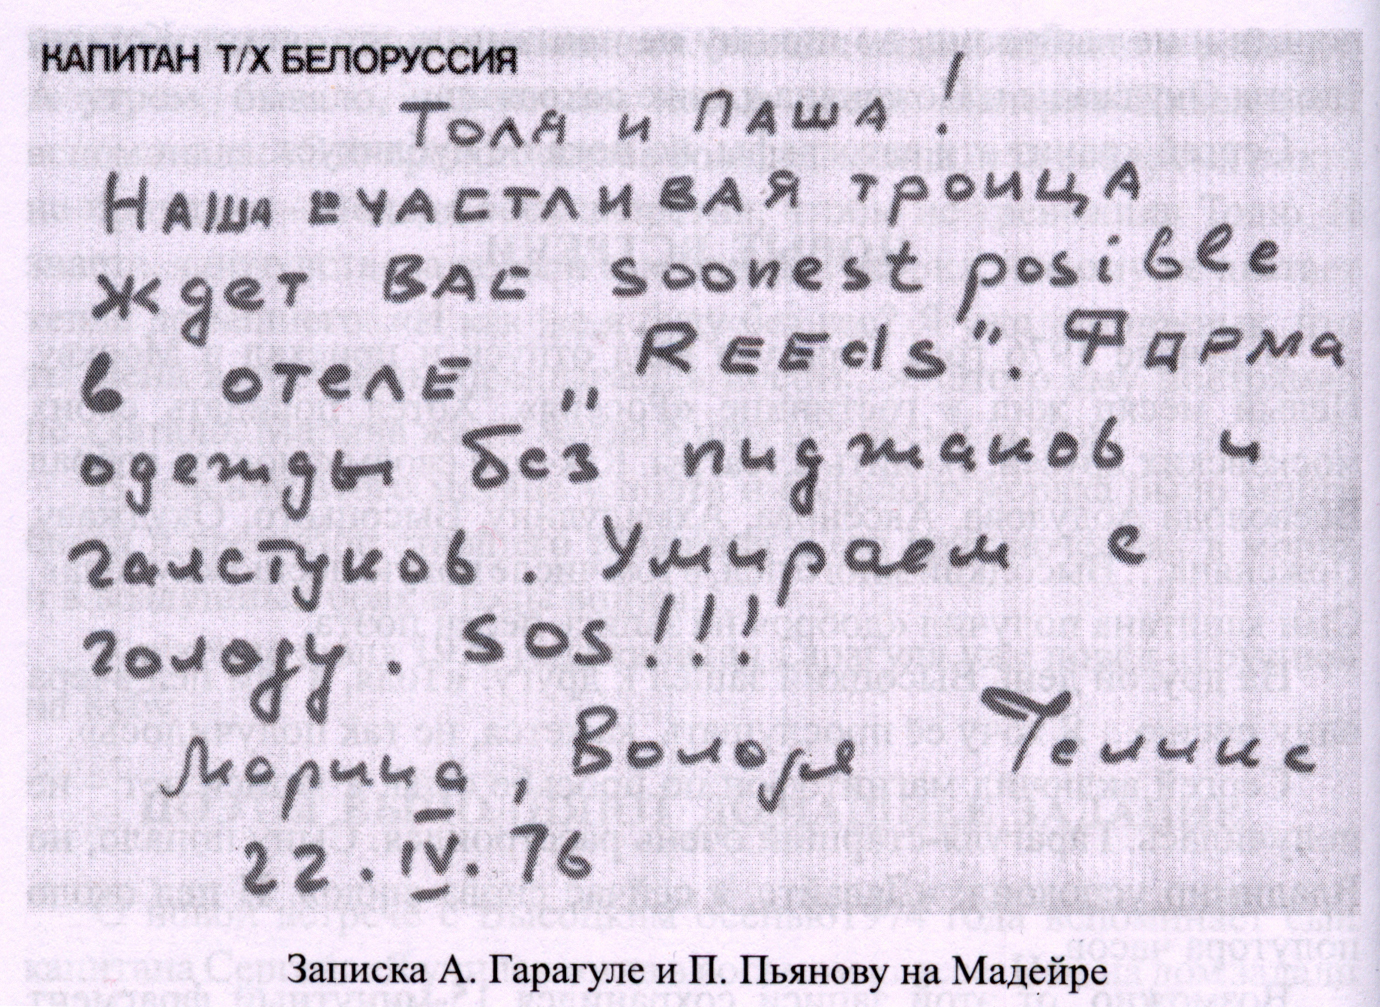 КАПИТАН Т/Х БЕЛОРУССИЯ
Толя и Паша!
Наша счастливая троица
ждет ВАС soonest posible
в отеле „REEds". Форма
одежды без пиджаков и
галстуков. Умираем с
голоду. SOS!!!
Марина, Володя Феликс
22.IV.76
Записка А. Гарагуле и П. Пьянову на Мадейре